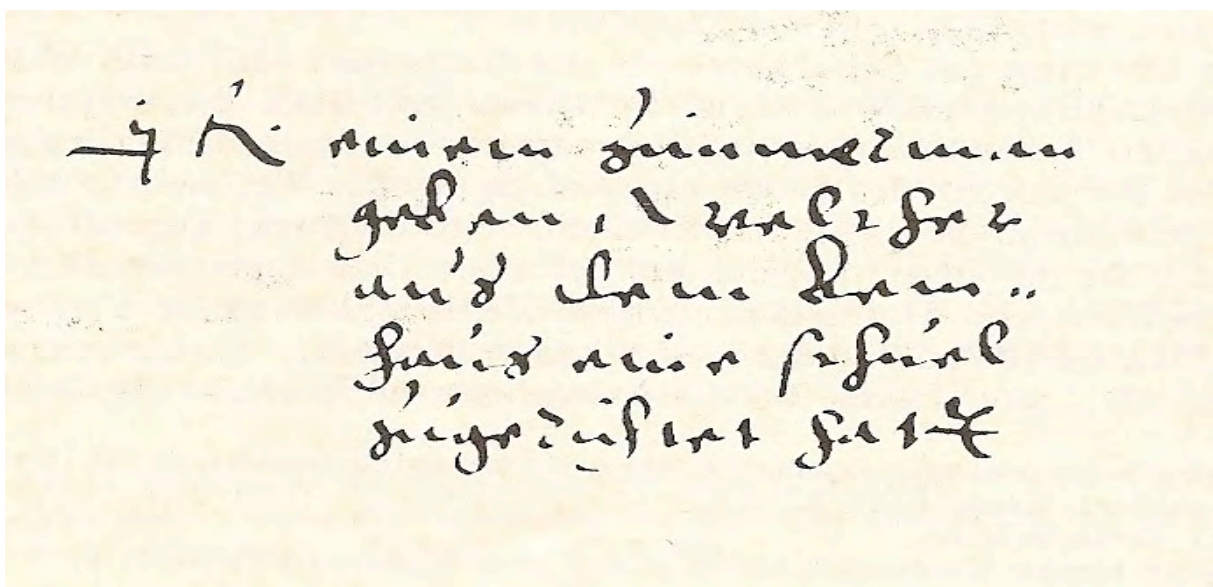 R. einem zimmerman
geben, welcher
aus dem Bein=
haus eine schuel
zugerichtet hat